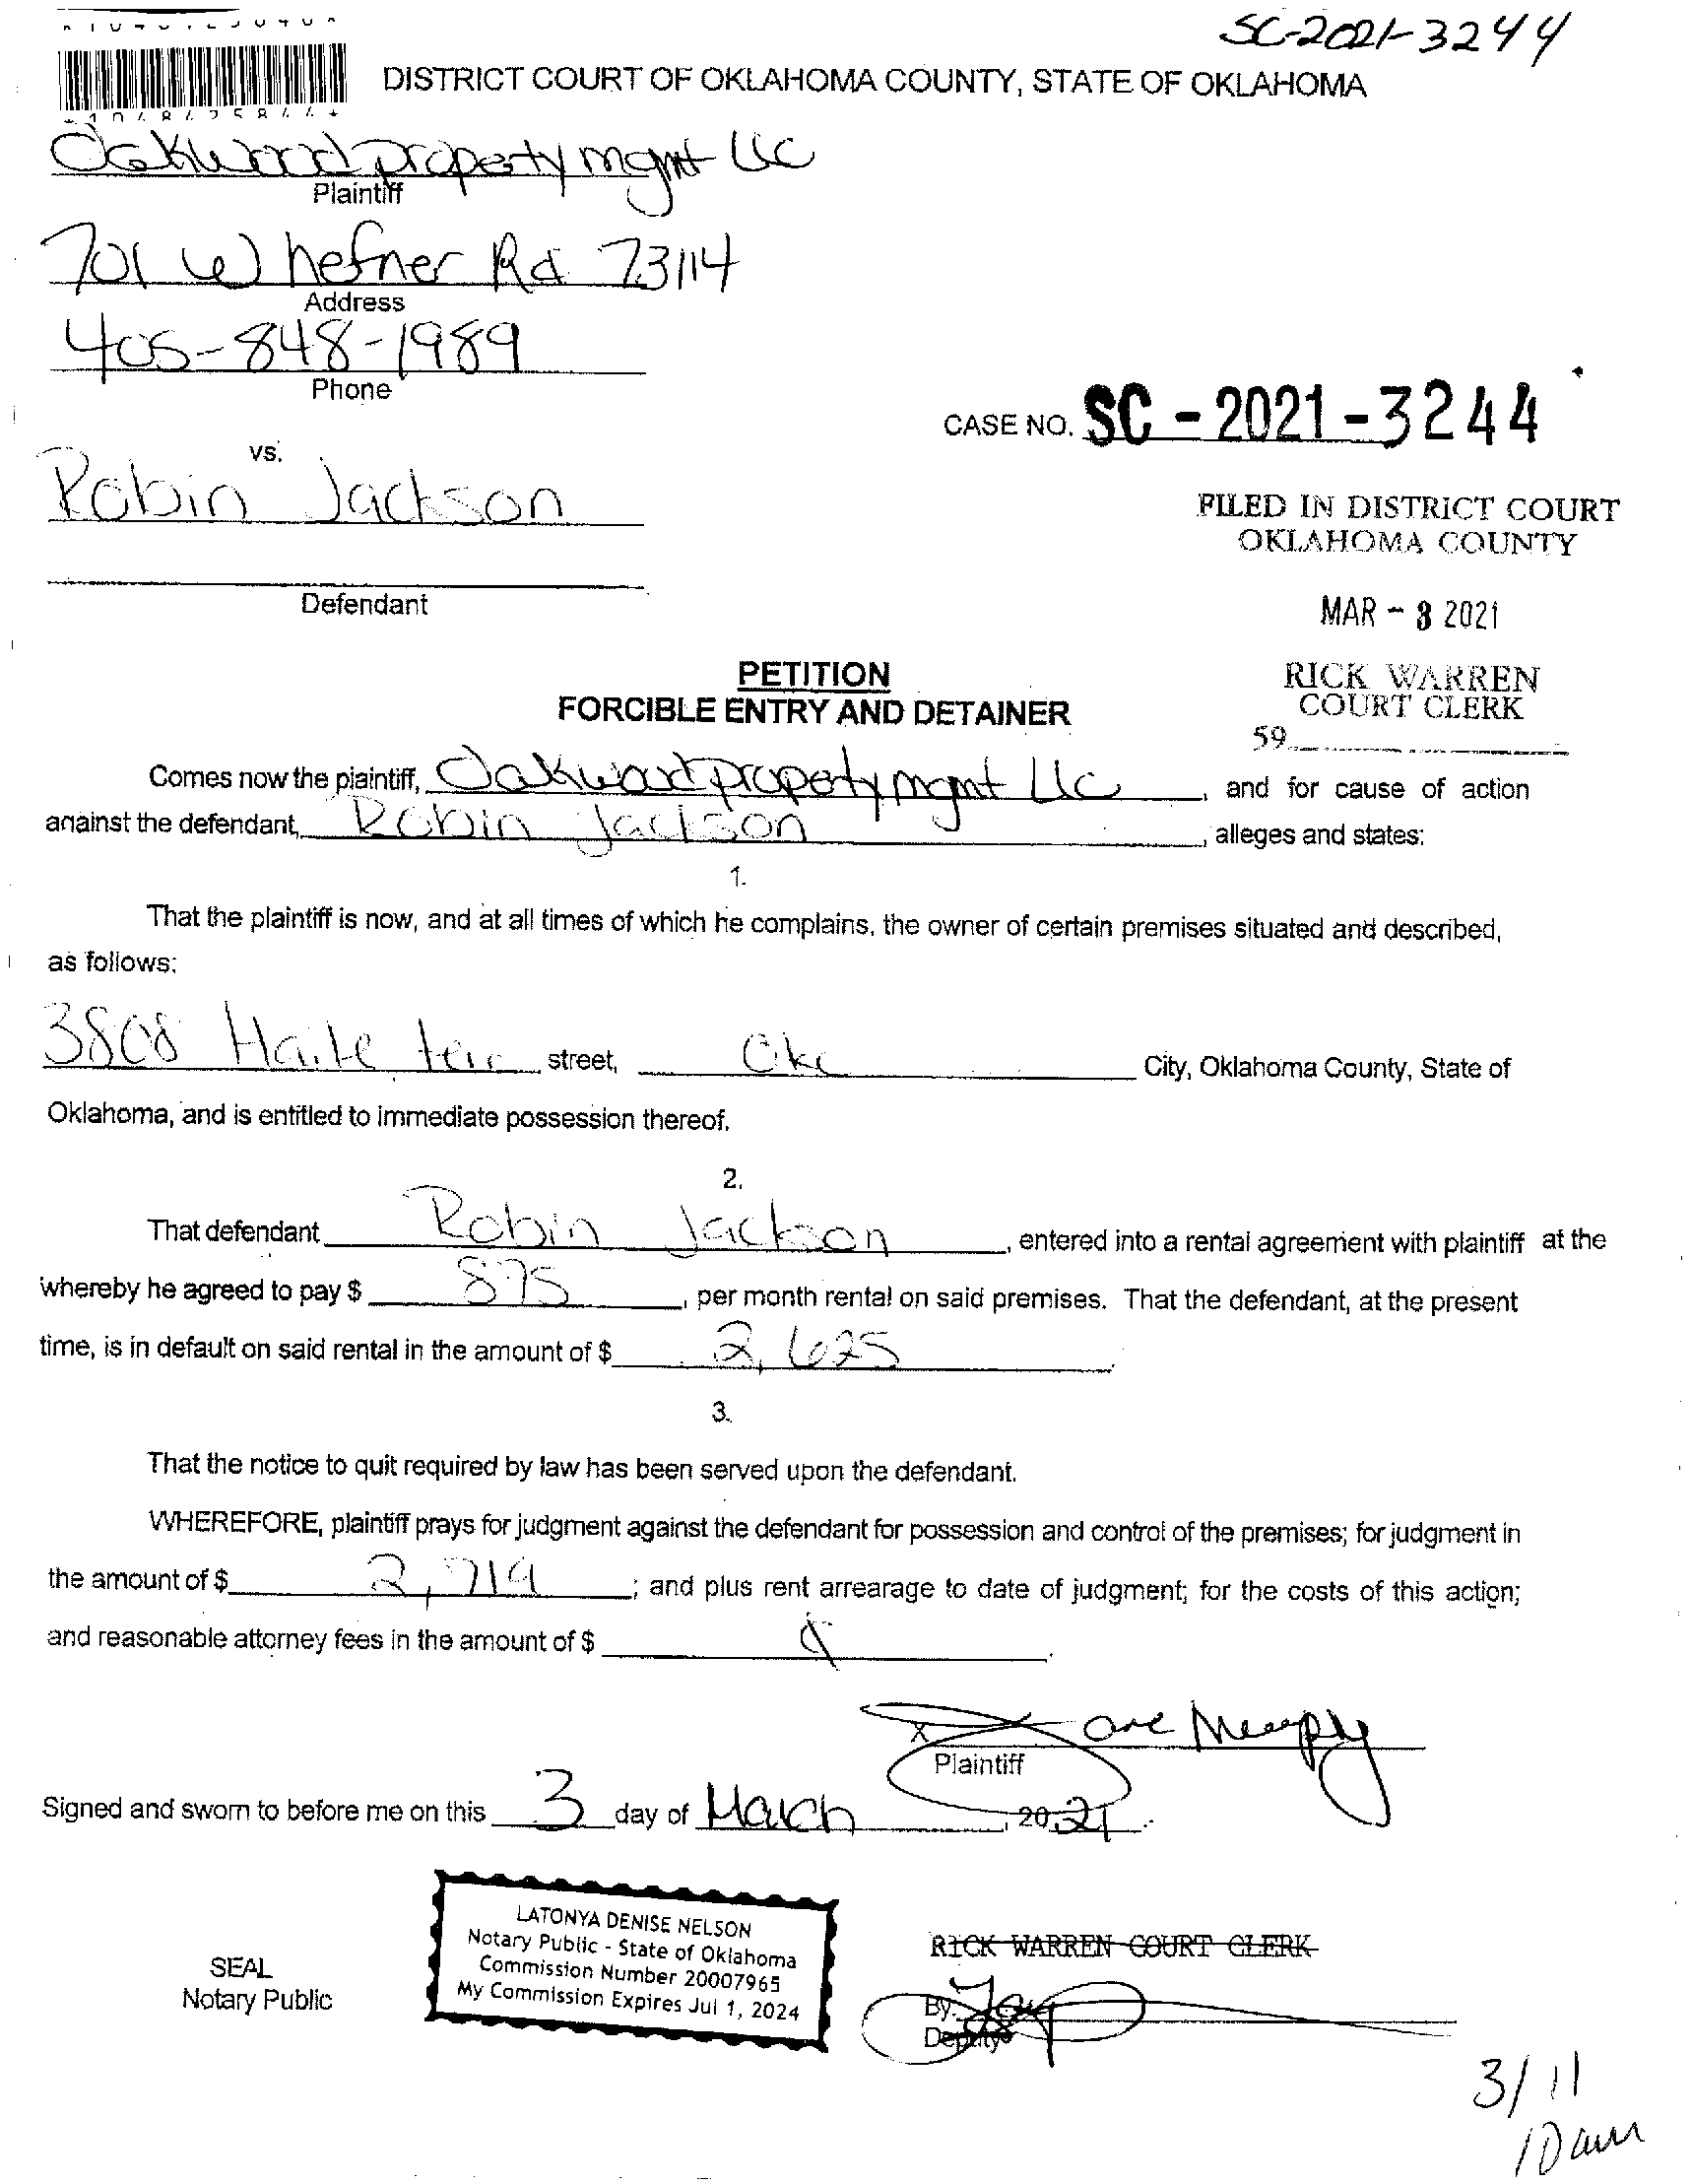 SC-2021-3244
DISTRICT COURT OF OKLAHOMA COUNTY, STATE OF OKLAHOMA
Oakwood property mgmt LLC
Plaintiff
701 W hefner Rd 73114
Address
405-848-1989
Phone
CASE NO. SC - 2021 - 3244
vs.
Robin Jackson
FILED IN DISTRICT COURT
OKLAHOMA COUNTY
Defendant
MAR - 3 2021
PETITION
FORCIBLE ENTRY AND DETAINER
RICK WARREN
COURT CLERK
59
Comes now the plaintiff, Oakwood property mgmt LLC, and for cause of action
against the defendant, Robin Jackson, alleges and states:
1.
That the plaintiff is now, and at all times of which he complains, the owner of certain premises situated and described,
as follows:
3808 terr street, Okc City, Oklahoma County, State of
Oklahoma, and is entitled to immediate possession thereof.
2.
That defendant Robin Jackson, entered into a rental agreement with plaintiff at the
whereby he agreed to pay $ 875, per month rental on said premises. That the defendant, at the present
time, is in default on said rental in the amount of $ 2,625.
3.
That the notice to quit required by law has been served upon the defendant.
WHEREFORE, plaintiff prays for judgment against the defendant for possession and control of the premises; for judgment in
the amount of $ 2,719; and plus rent arrearage to date of judgment; for the costs of this action;
and reasonable attorney fees in the amount of $
x
Plaintiff
Signed and sworn to before me on this 3 day of March, 2021.
LATONYA DENISE NELSON
Notary Public - State of Oklahoma
Commission Number 20007965
My Commission Expires Jul 1, 2024
SEAL
Notary Public
RICK WARREN COURT CLERK
By
Deputy
3/11
10am